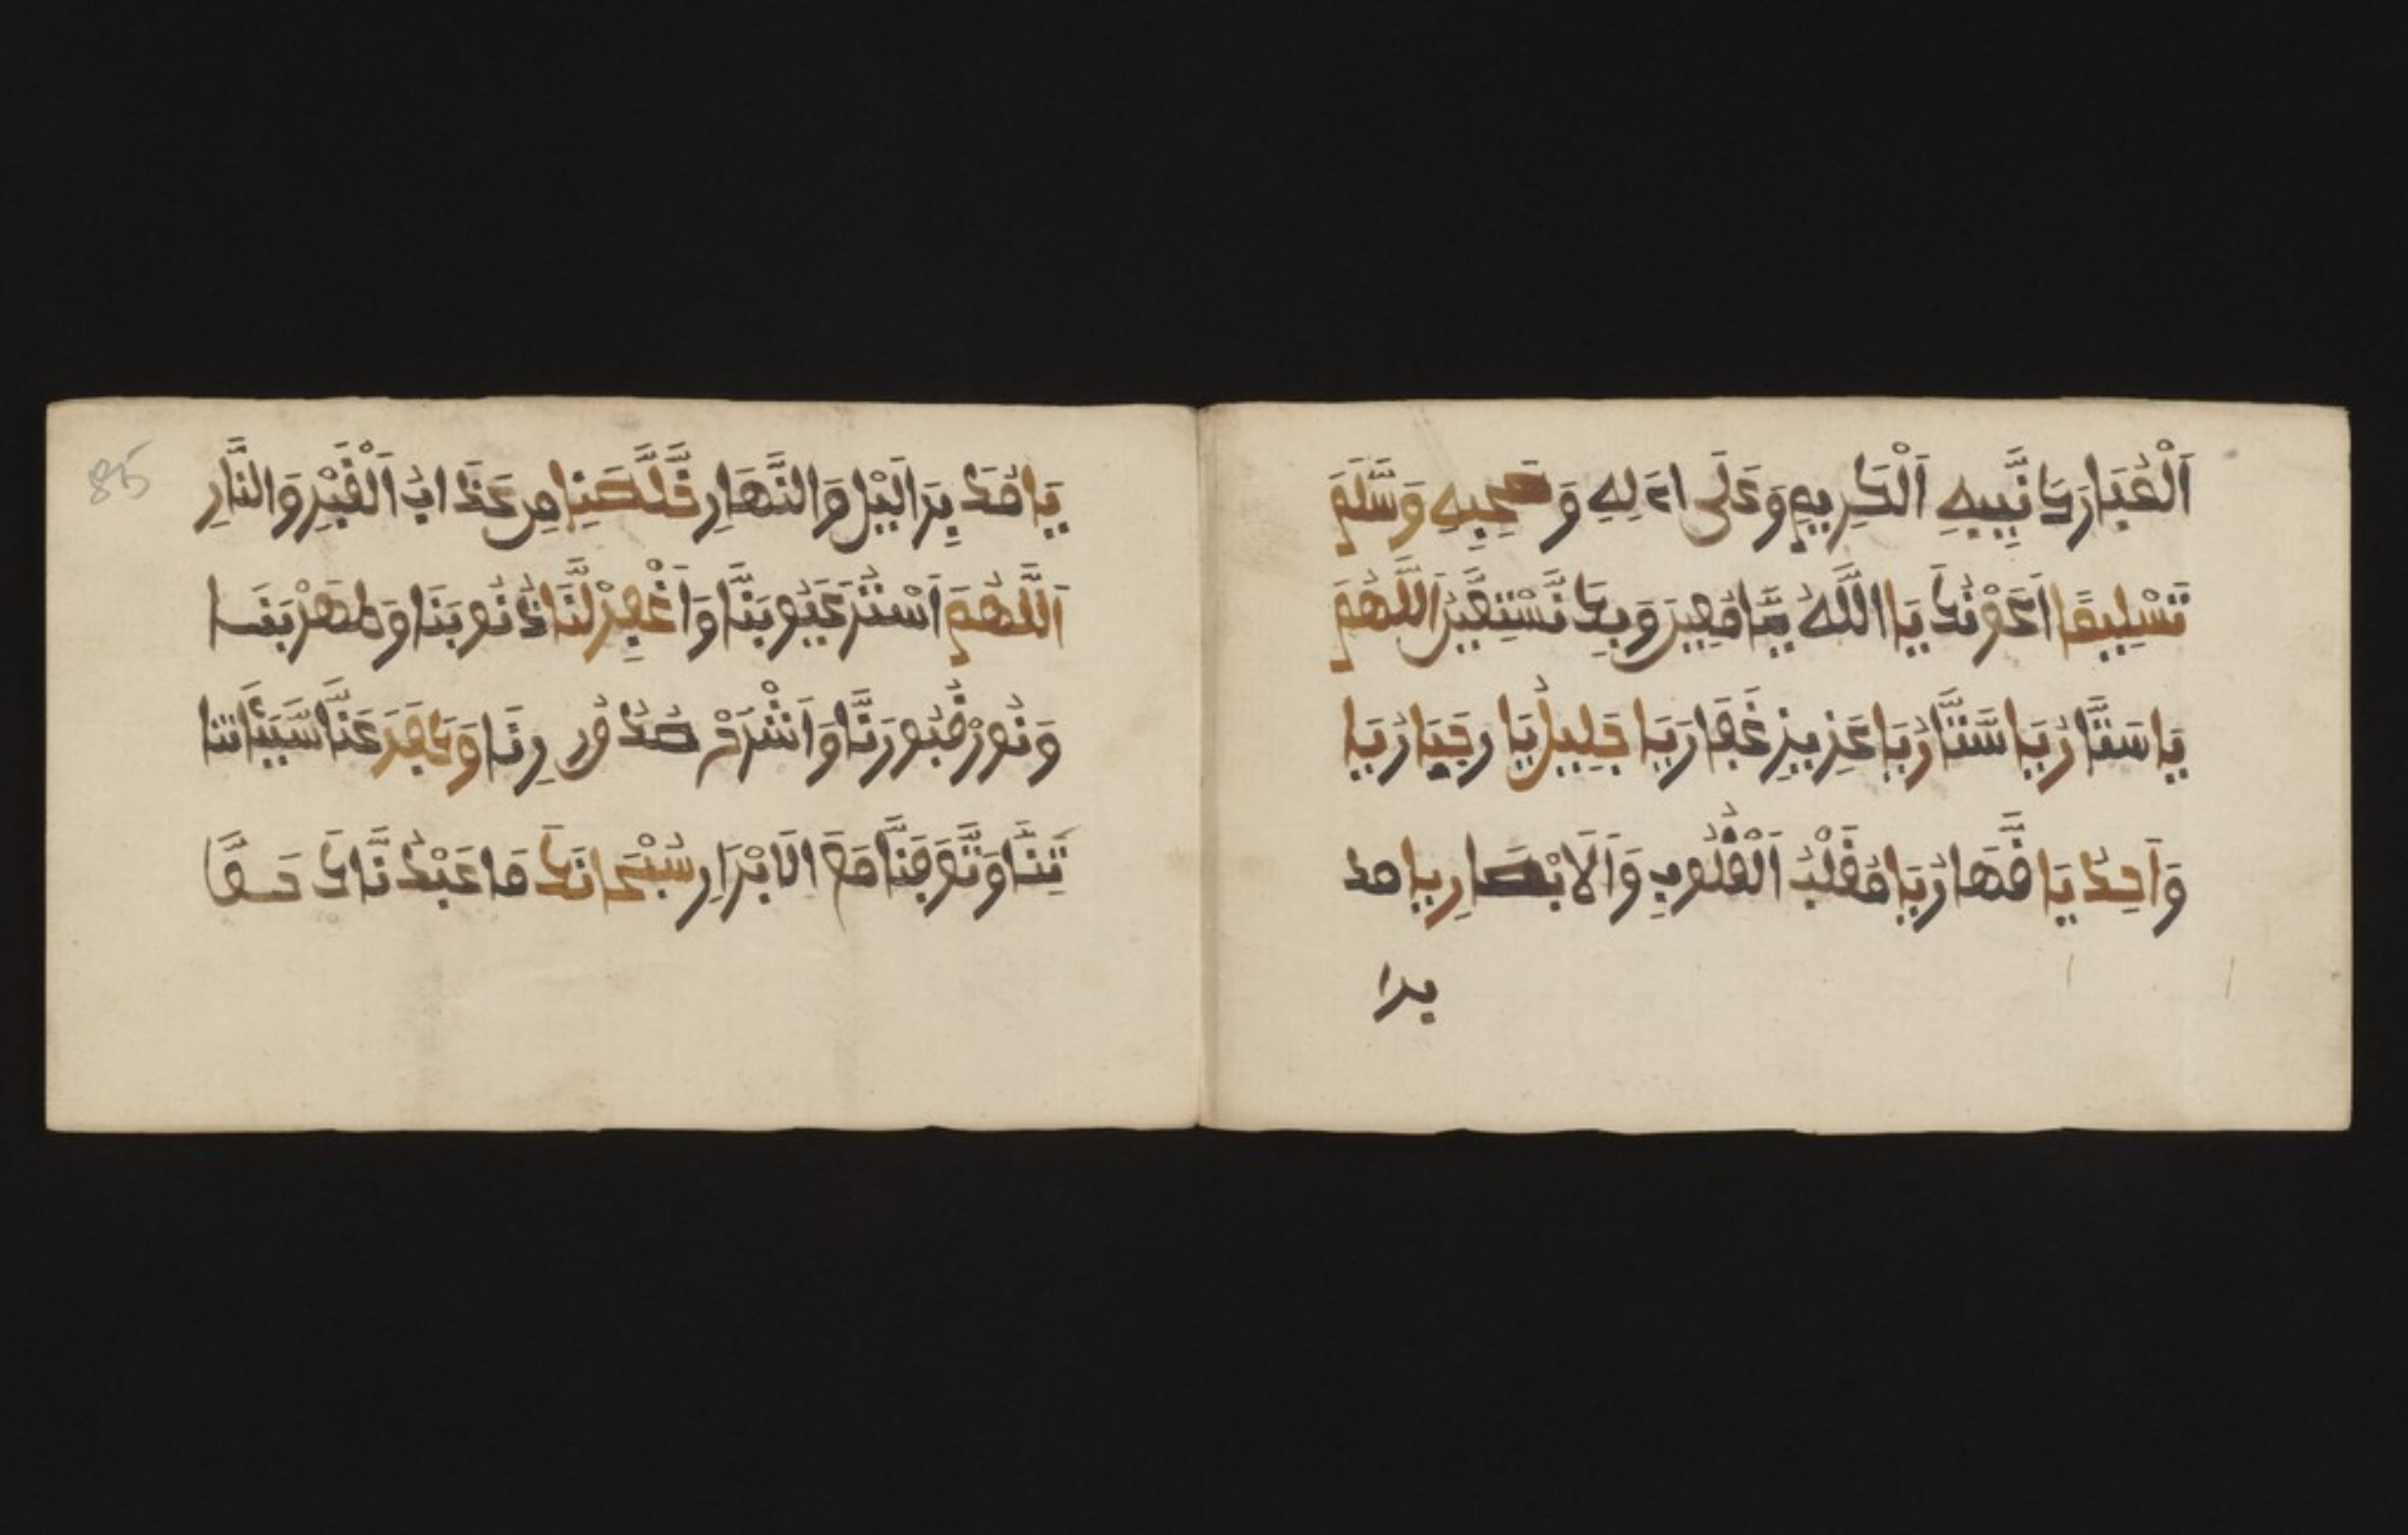 اَلْمُبَارَكَ نَّبِيِهِ اَلْكَرِيمِ وَعَلَى اءَلِهِ وَصَحْبِهِ وَسَّلَّمَ
تَسْلِيمًا اَعُوْذُكَ يَا اللَّهُ يَّامُعِيرَ وَبِكَ نَّسْتَعِيرُ اَللَّهُمَّ
يَا سَتَّارُ يَا سَّتَّارُ يَا عَزِيزِ غَفَارَ يَا جَلِيلُ يَا جَبَارُ يَا
وَاَحِدُ يَا قَّهَارُ يَا مُفَلْبُ اَلْقُلُوبِ وَاَلَابْصَارِ يامد
برا
يَا مُدَبِّرَ الَيْلِ وَالنَّهَارِ خَّلَّصْنِا مِن عَذَابُ اَلْقَبْرِ وَالنَّارِ
اَللَّهُمَّ اَسْتُرْ عَيُوبَنَّا وَاَغْفِرْلَنَّا ذُنُوبَنَا وَطَهِّرْ
وَنُورْ قُبُورَنَّا وَاَشْرَحْ صُدُورِنَا وَكَفِرَ عَنَّا سَّيِئَاتنا
تِنَّا وَتَّوَفِنَّا مَعَ الَابْرَارِ سُبْحَانَكَ مَا عَبْدُنَّاكَ حَقَّا
85